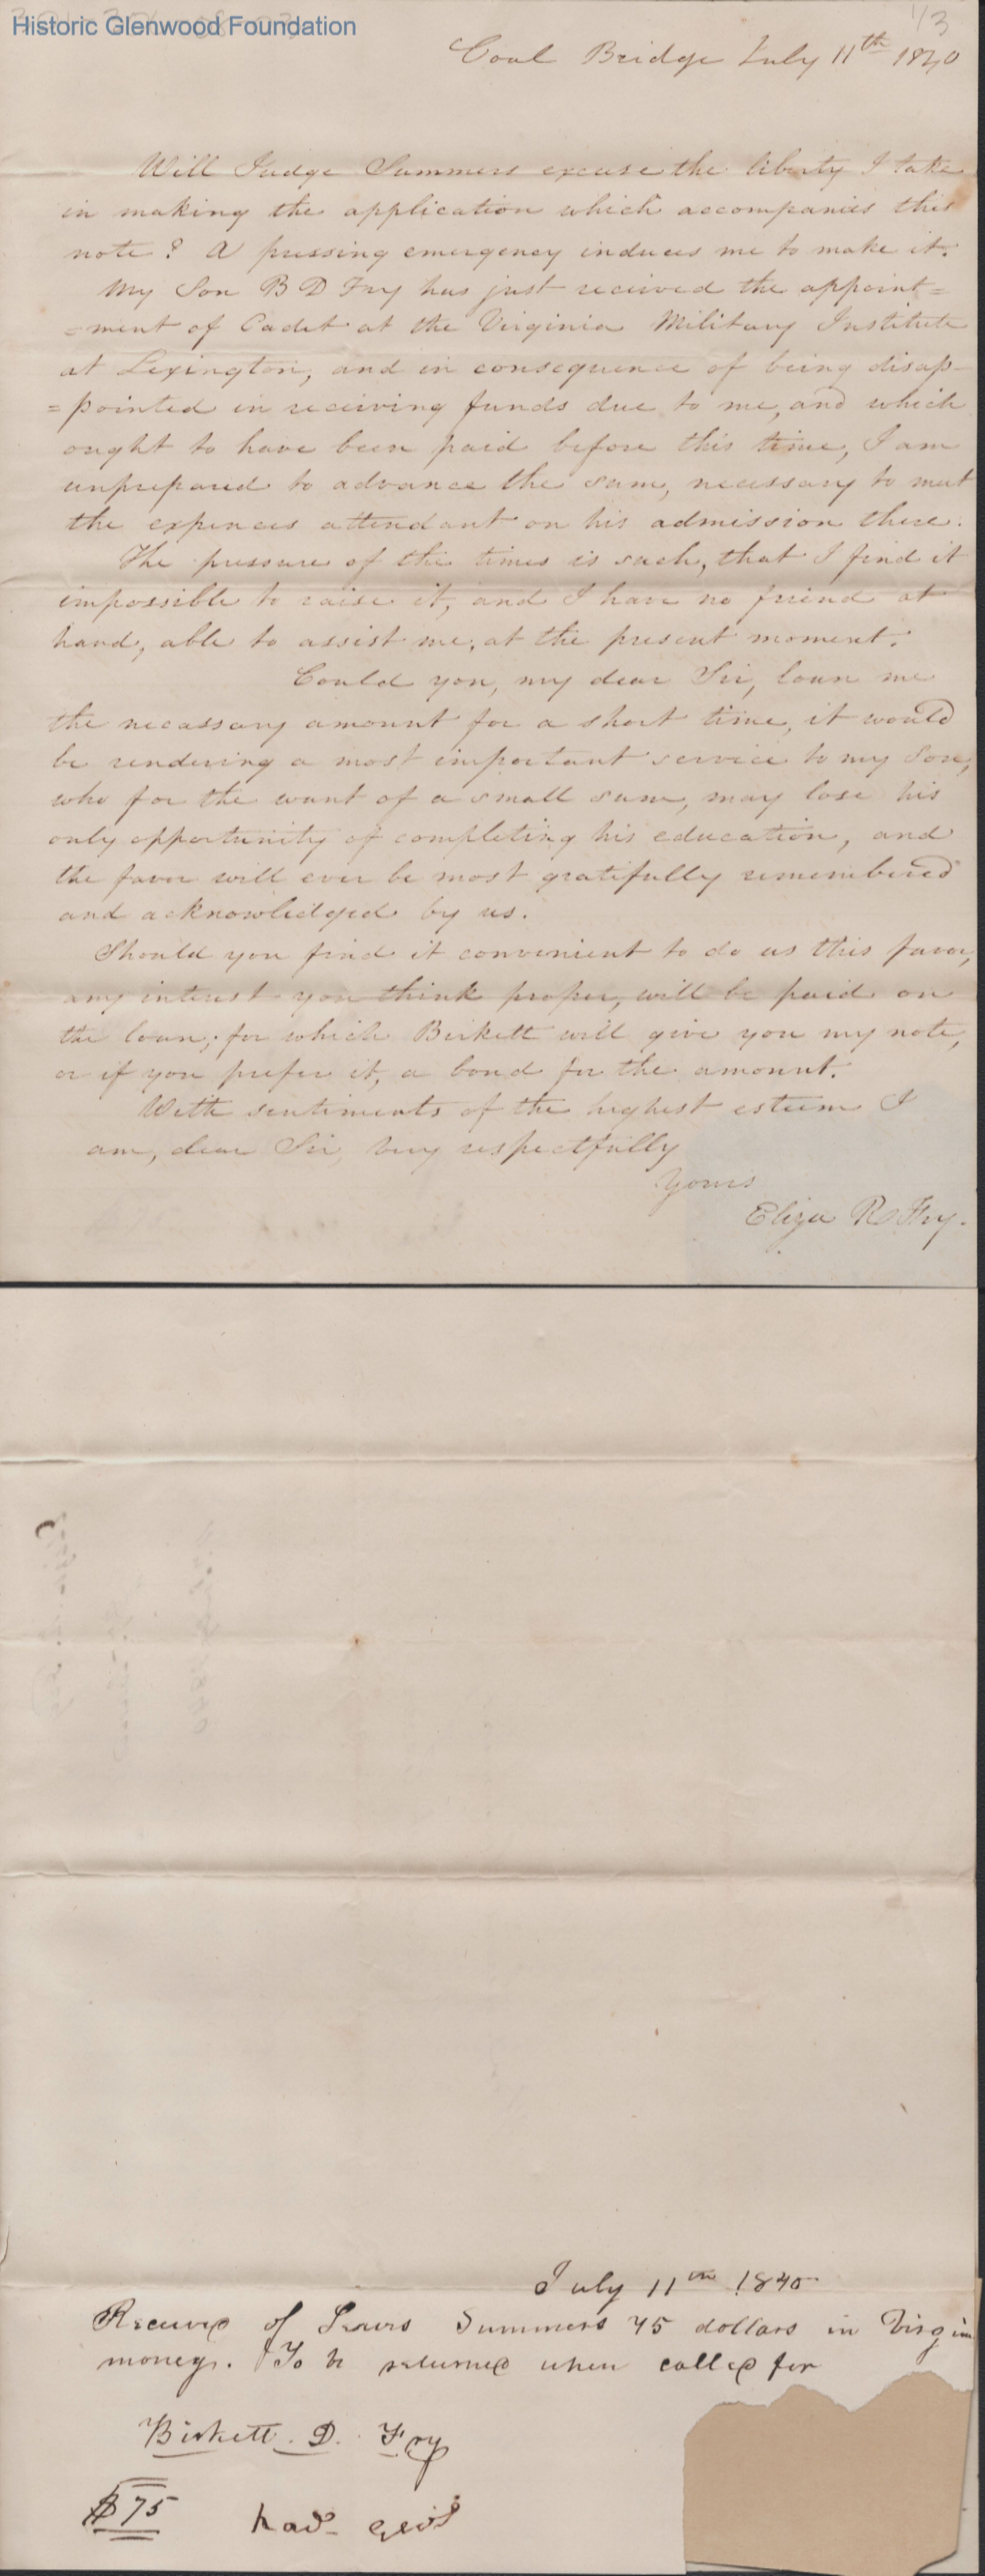 Historic Glenwood Foundation
1/3
Coal Bridge July 11th 1840
Will Judge Summers excuse the liberty I take
in making the application which accompanies this
note? A pressing emergency induces me to make it.
My Son B D Fry has just received the appoint=
=ment of Cadet at the Virginia Military Institute
at Lexington, and in consequence of being disap-
=pointed in receiving funds due to me, and which
ought to have been paid before this time, I am
unprepared to advance the sum, necessary to meet
the expences attendant on his admission there.
The pressure of the times is such, that I find it
impossible to raise it, and I have no friend at
hand, able to assist me, at the present moment.
Could you, my dear Sir, loan me
the necassary amount for a short time, it would
be rendering a most important service to my Son,
who for the want of a small sum, may lose his
only opportunity of completing his education, and
the favor will ever be most gratifully remembered
and acknowledged by us.
Should you find it convenient to do us this favor,
any interest you think proper, will be paid on
the loan; for which Birkett will give you my note,
or if you prefer it, a bond for the amount.
With sentiments of the highest esteem I
am, dear Sir, very respectfully
Yours
Eliza R Fry.
July 11th 1840
Received of Lewis Summers 75 dollars in Virgin
money. To be returned when called for
Birkett. D. Fry
$75